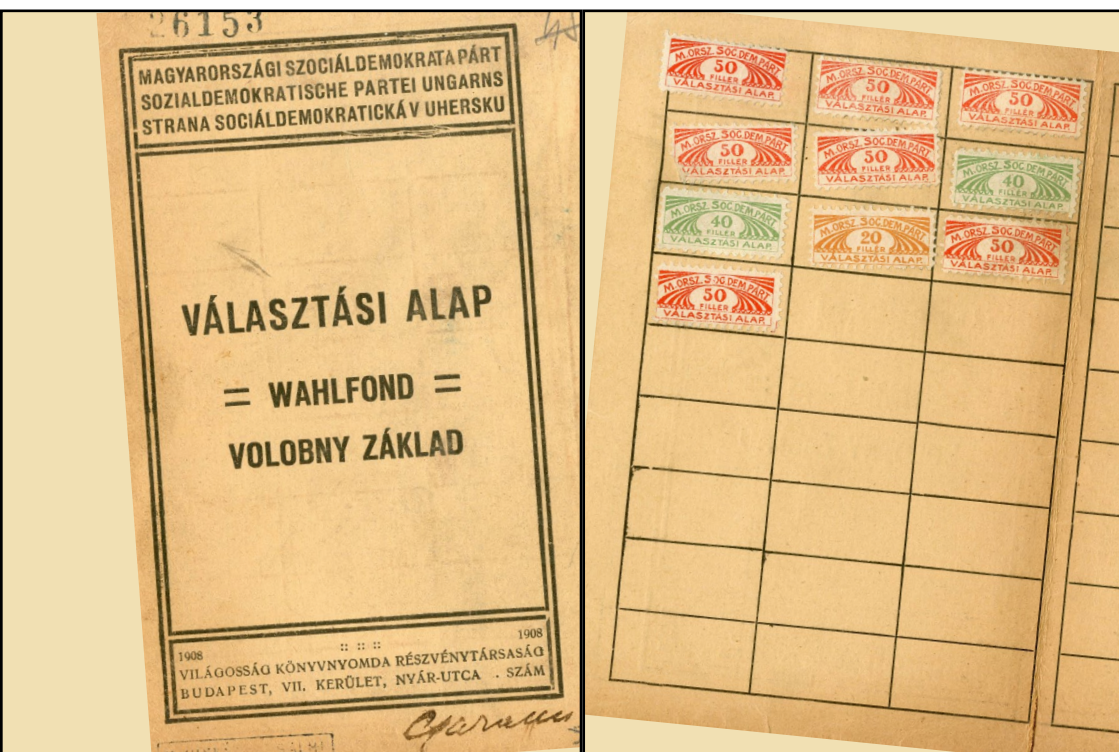 26153
MAGYARORSZÁGI SZOCIÁLDEMOKRATA PÁRT
SOZIALDEMOKRATISCHE PARTEI UNGARNS
STRANA SOCIÁLDEMOKRATICKÁ V UHERSKU
VÁLASZTÁSI ALAP
= WAHLFOND =
VOLOBNY ZÁKLAD
1908 :: :: :: 1908
VILÁGOSSÁG KÖNYVNYOMDA RÉSZVÉNYTÁRSASÁG
BUDAPEST, VII. KERÜLET, NYÁR-UTCA . SZÁM
M. ORSZ. SOC. DEM. PÁRT
50
FILLÉR
VÁLASZTÁSI ALAP.
M. ORSZ. SOC. DEM. PÁRT
50
FILLÉR
VÁLASZTÁSI ALAP.
M. ORSZ. SOC. DEM. PÁRT
50
FILLÉR
VÁLASZTÁSI ALAP.
M. ORSZ. SOC. DEM. PÁRT
50
FILLÉR
VÁLASZTÁSI ALAP.
M. ORSZ. SOC. DEM. PÁRT
50
FILLÉR
VÁLASZTÁSI ALAP.
M. ORSZ. SOC. DEM. PÁRT
40
FILLÉR
VÁLASZTÁSI ALAP.
M. ORSZ. SOC. DEM. PÁRT
40
FILLÉR
VÁLASZTÁSI ALAP.
M. ORSZ. SOC. DEM. PÁRT
20
FILLÉR
VÁLASZTÁSI ALAP.
M. ORSZ. SOC. DEM. PÁRT
50
FILLÉR
VÁLASZTÁSI ALAP.
M. ORSZ. SOC. DEM. PÁRT
50
FILLÉR
VÁLASZTÁSI ALAP.